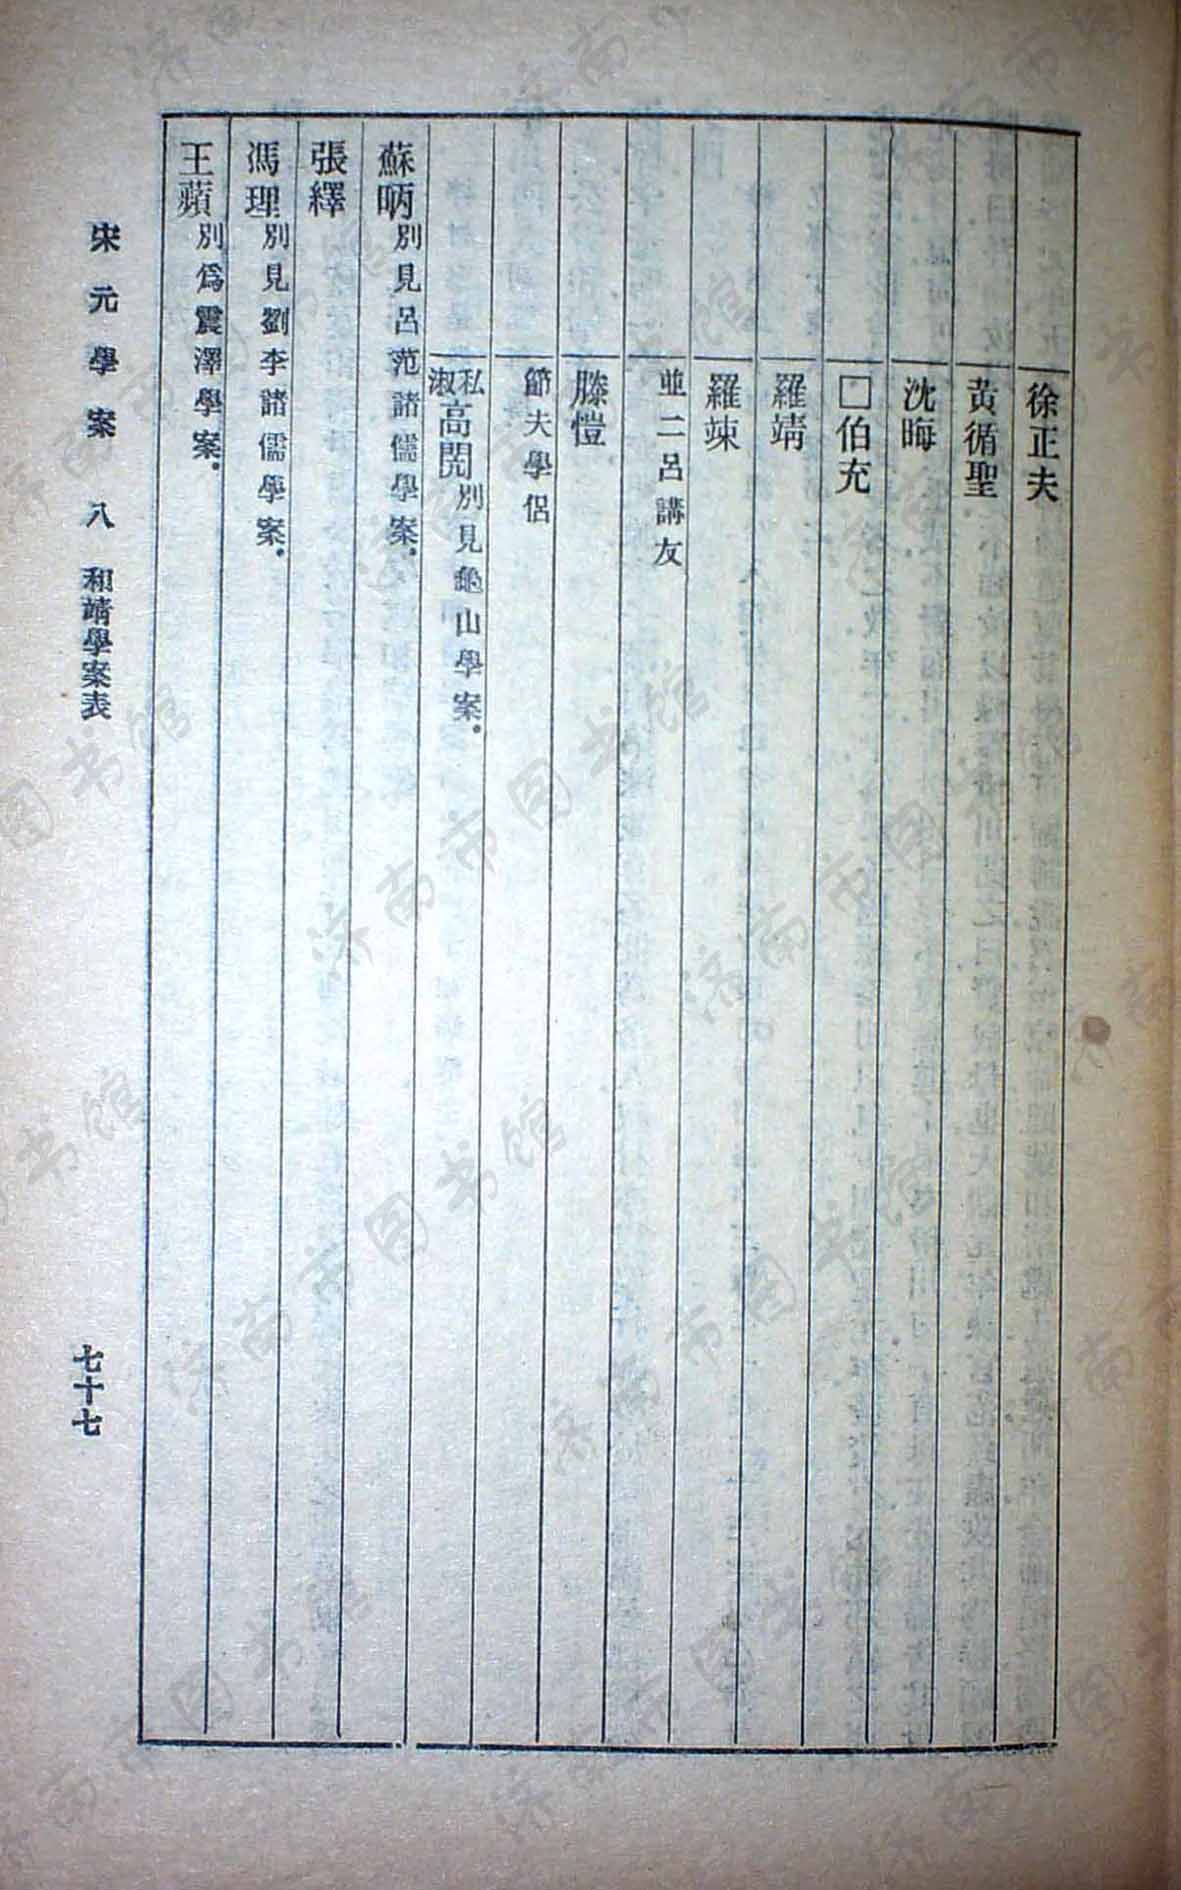 徐正夫
黃循聖
沈晦
□伯充
羅靖
羅竦
並二呂講友
滕愷
節夫學侶
私淑高閌別見龜山學案.
蘇昞別見呂范諸儒學案.
張繹
馮理別見劉李諸儒學案.
王蘋別爲震澤學案.
宋元學案 八 和靖學案表
七十七
济南市图书馆